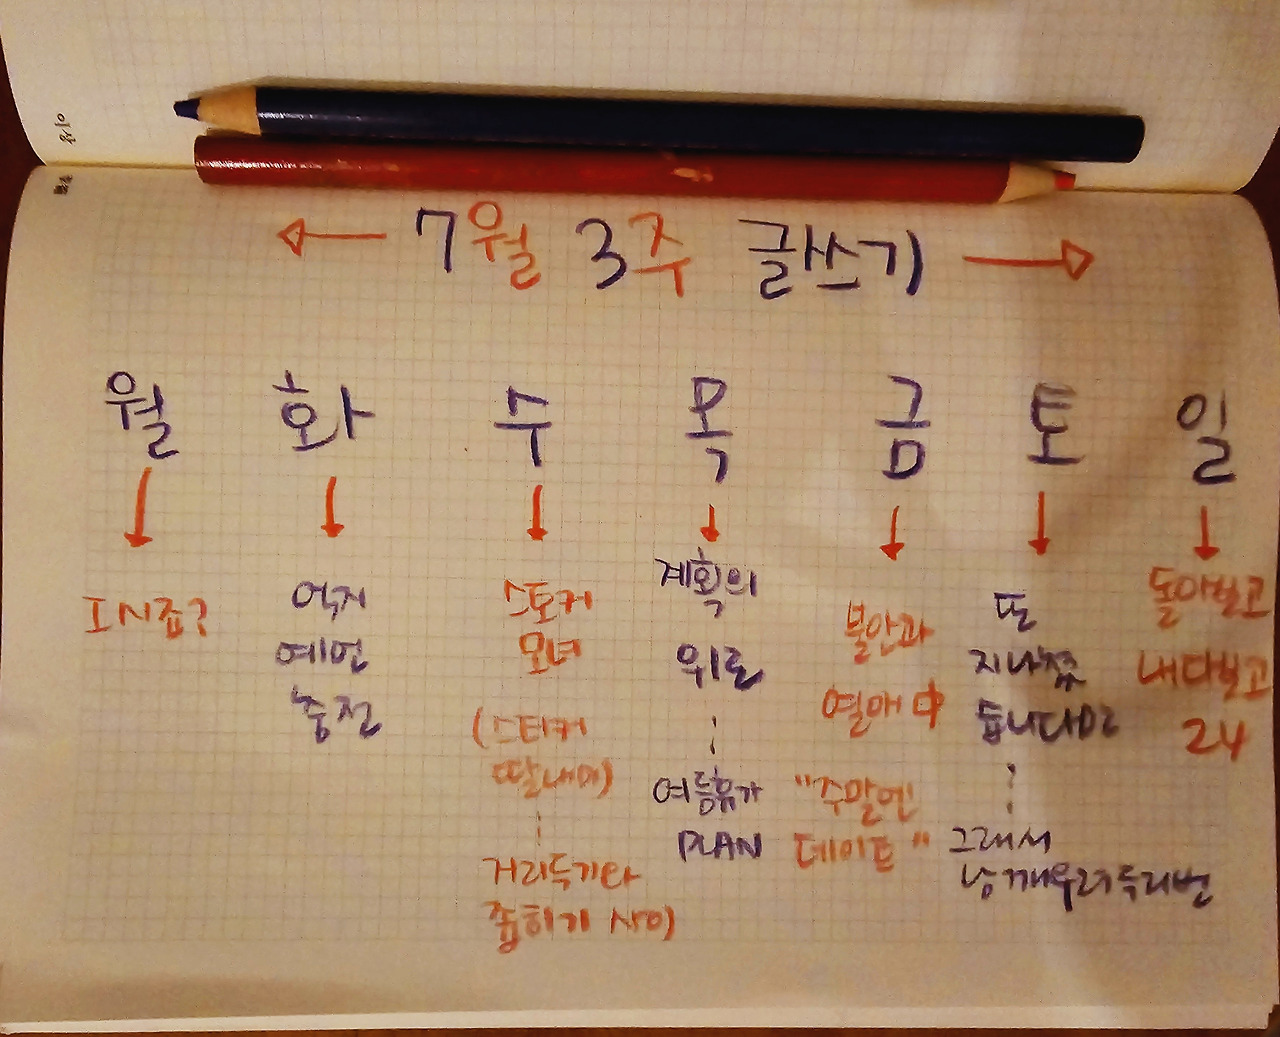 7월 3주 글쓰기
월 화 수 목 금 토 일
I시죠?
억지
예언
충전
스토커
모녀
(스티커
딸내미)
거리두기와
좁히기 사이
계획의
위로
여름휴가
PLAN
불안과
열애 中
"주말엔
데이트"
또
지나쳤
습니다만
그래서
남깨우려두리번
돌아보고
내다보고
24